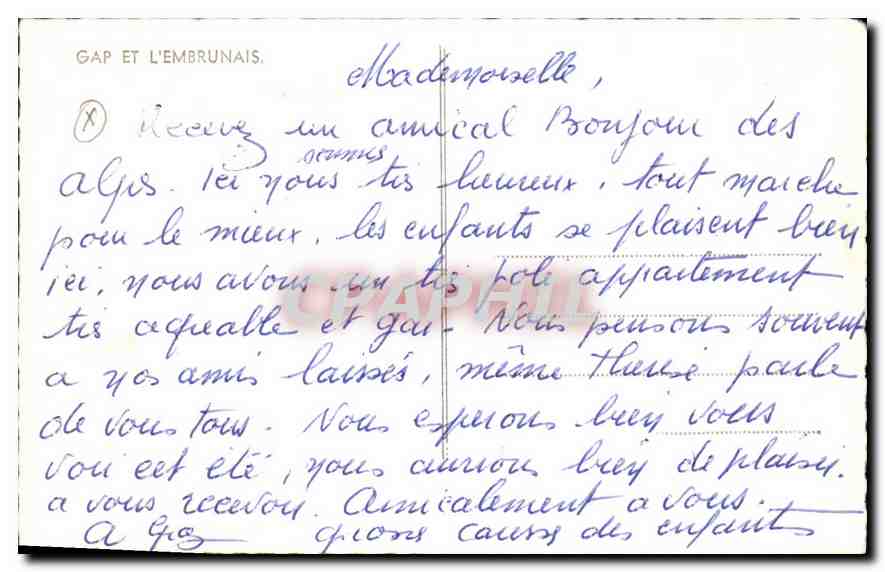 GAP ET L'EMBRUNAIS.
Mademoiselle,
(X) Recevez un amical Bonjour des
sommes
Alpes. Ici nous très heureux, tout marche
pour le mieux, les enfants se plaisent bien
ici, nous avons un très joli appartement
très agréable et gai. Nous pensons souvent
a nos amis laissés, même Thérèse parle
de vous tous. Nous esperons bien vous
voir cet été, nous aurions bien de plaisir
a vous recevoir. Amicalement a vous.
grosses des enfants
CPAPHIL